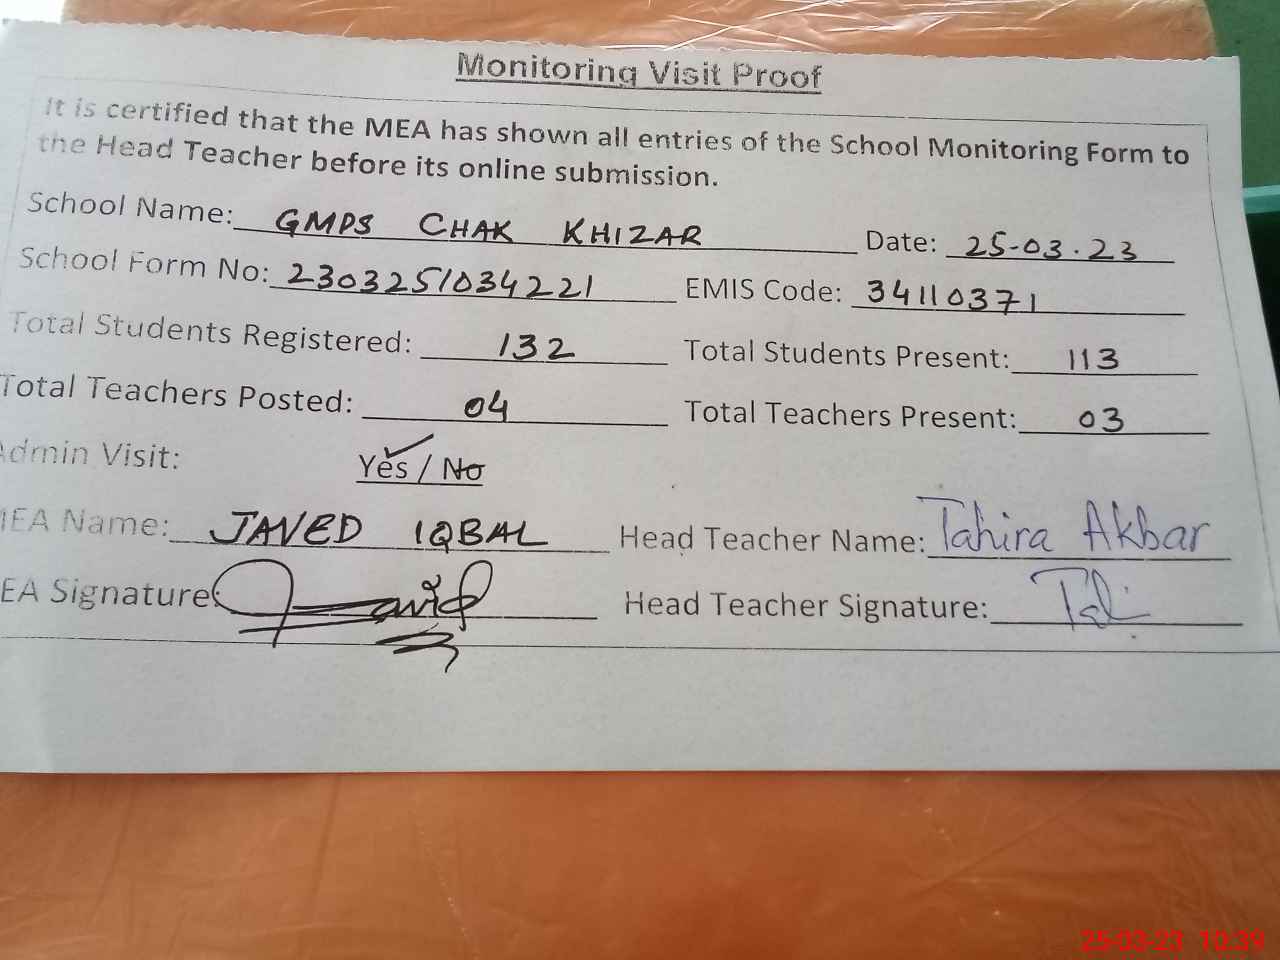 Monitoring Visit Proof
It is certified that the MEA has shown all entries of the School Monitoring Form to
the Head Teacher before its online submission.
School Name: GMPS CHAK KHIZAR Date: 25-03.23
School Form No: 2303251034221 EMIS Code: 34110371
Total Students Registered: 132 Total Students Present: 113
Total Teachers Posted: 04 Total Teachers Present: 03
Admin Visit: Yes / No
MEA Name: JAVED IQBAL Head Teacher Name: Tahira Akbar
EA Signature: Javid Head Teacher Signature:
25-03-23 10:39